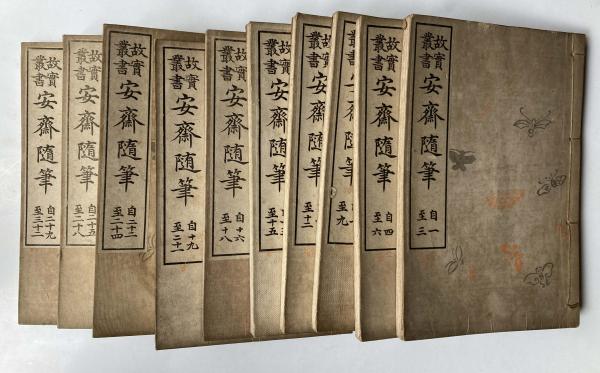 故實
叢書
安齋隨筆
自一
至三
故實
叢書
安齋隨筆
自四
至六
故實
叢書
安齋隨筆
至九
故實
叢書
安齋隨筆
至十二
故實
叢書
安齋隨筆
至十五
故實
叢書
安齋隨筆
自十六
至十八
故實
叢書
安齋隨筆
自十九
至二十一
故實
叢書
安齋隨筆
自二十二
至二十四
故實
叢書
安齋隨筆
自二十五
至二十八
故實
叢書
安齋隨筆
自二十九
至三十二